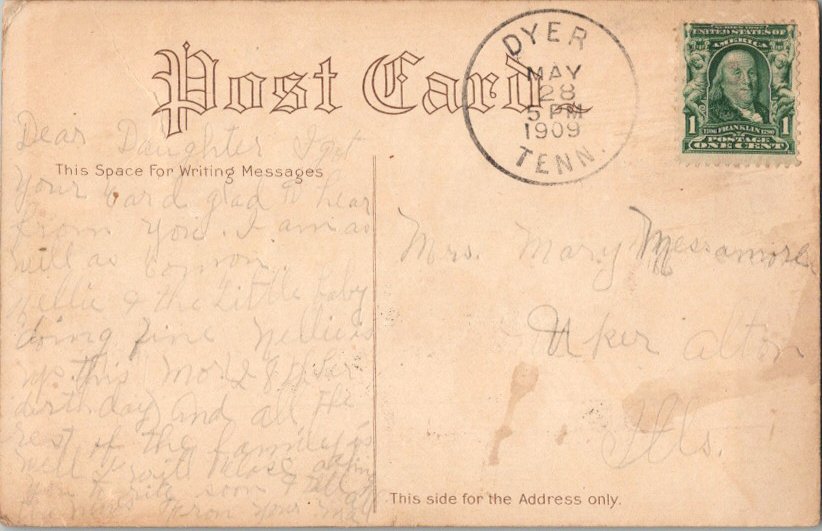 Post Card
DYER
MAY
28
5 PM
1909
TENN.
UNITED STATES OF
AMERICA
1 FRANKLIN 1
POSTAGE
ONE CENT
This Space For Writing Messages
Dear Daughter I got
your card glad to hear
from you. I am as
well as common.
Nellie & the little baby
doing fine Nellie is
up this
birthday and all the
rest of the family is
well I will close
you to rite soon &
the news from your
Mrs. Mary Messamore
Uker alton
Ills.
This side for the Address only.